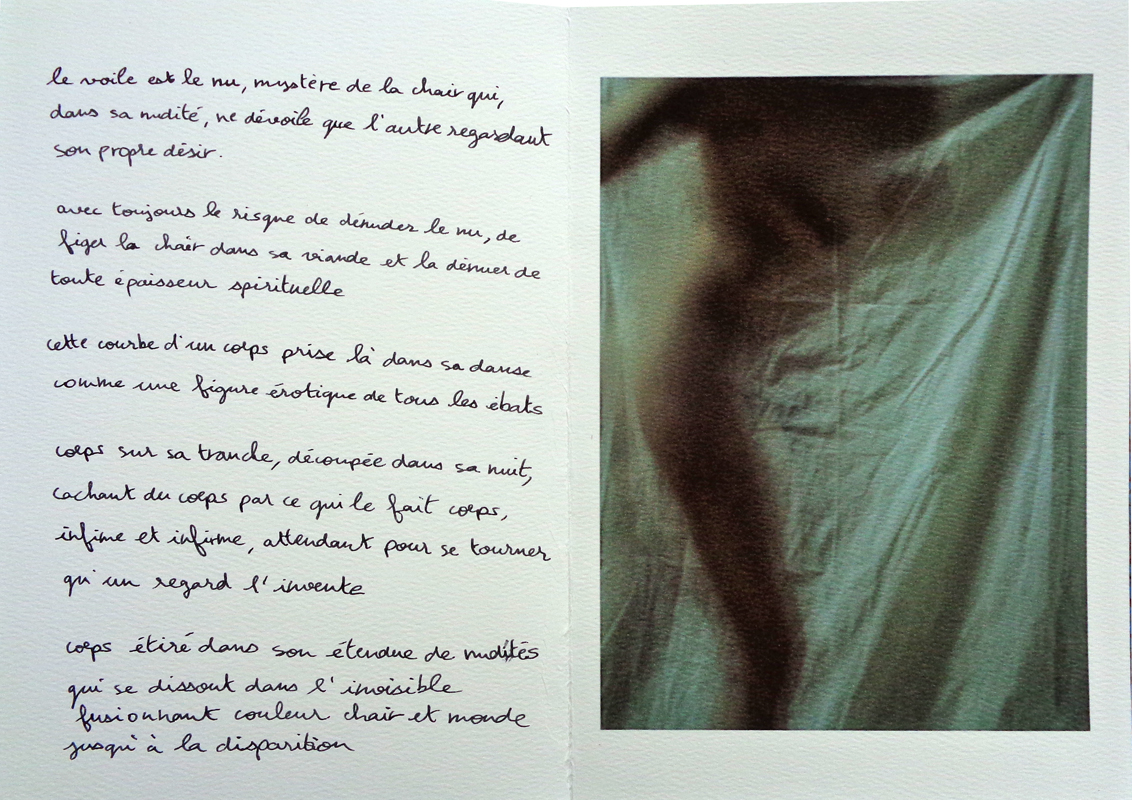 le voile est le nu, mystère de la chair qui,
dans sa nudité, ne dévoile que l'autre regardant
son propre désir.
avec toujours le risque de dénuder le nu, de
figer la chair dans sa viande et la dénuer de
toute épaisseur spirituelle
cette courbe d'un corps prise là dans sa danse
comme une figure érotique de tous les ébats
corps sur sa tranche, découpée dans sa nuit,
cachant du corps par ce qui le fait corps,
infime et infirme, attendant pour se tourner
qu'un regard l'invente
corps étiré dans son étendue de nudités
qui se dissout dans l'invisible
fusionnant couleur chair et monde
jusqu'à la disparition